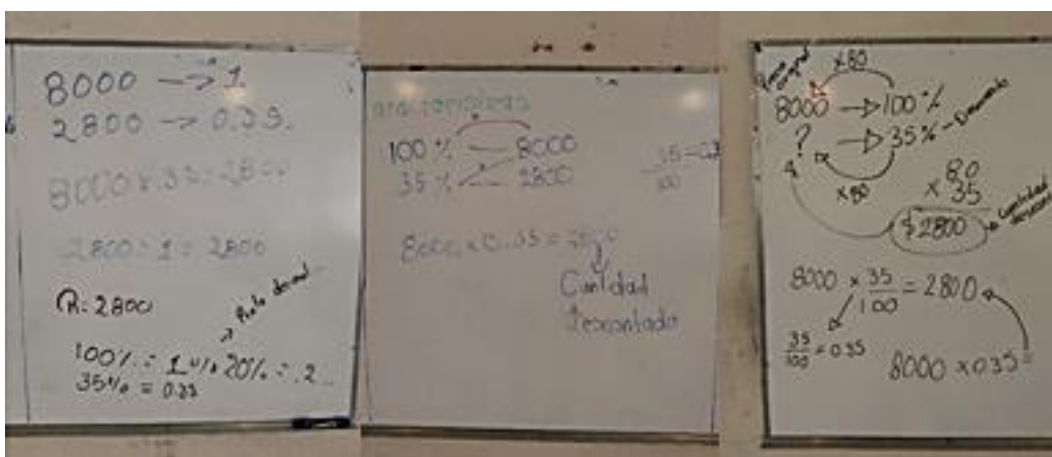 8000 → 1
2800 → 0.35.
8000 x .35 = 2800
2800 ÷ 1 = 2800
R. 2800
100% = 1
20% = .2
35% = 0.35
100% — 8000
35% — 2800
35
100
8000 x 0.35 = 2800
Cantidad
Descontada
x80
8000 → 100%
? → 35% - Descuento
x80
80
x 35
$2800
Cantidad
8000 x 35/100 = 2800
35/100 = 0.35
8000 x 0.35 =